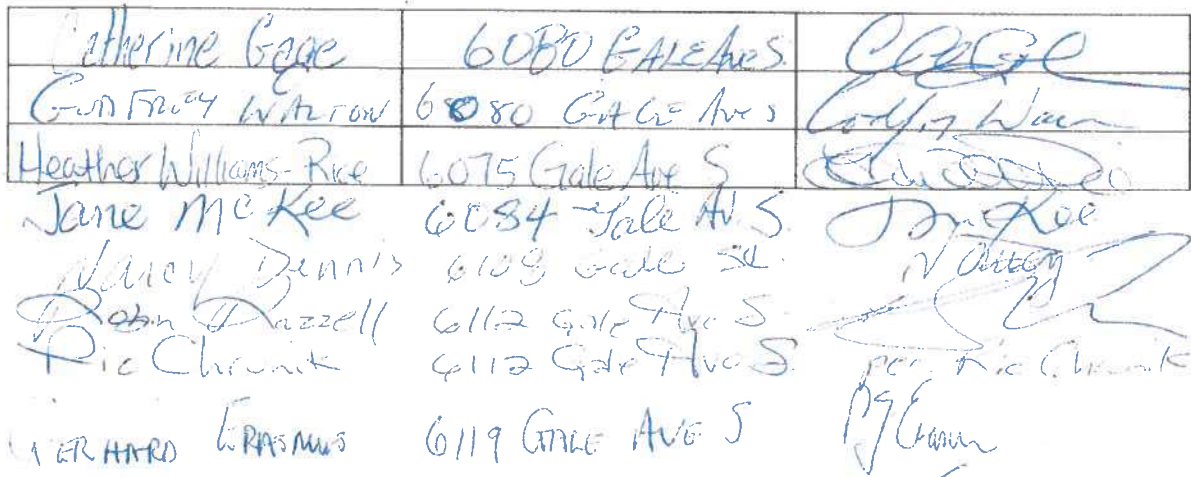 Catherine Gage 6080 GALE Ave S.
WALTON 6080 GALE Ave S
Heather Williams-Rice 6075 Gale Ave S
Jane McKee 6084 Gale Av. S. JMcKee
Nancy Dennis 6108 Gale
Robin Dazzell 6112 Gale Ave S.
Ric Chrunik 6112 Gale Ave S. per Ric Chrunik
GERHARD ERASMUS 6119 GALE AVE S